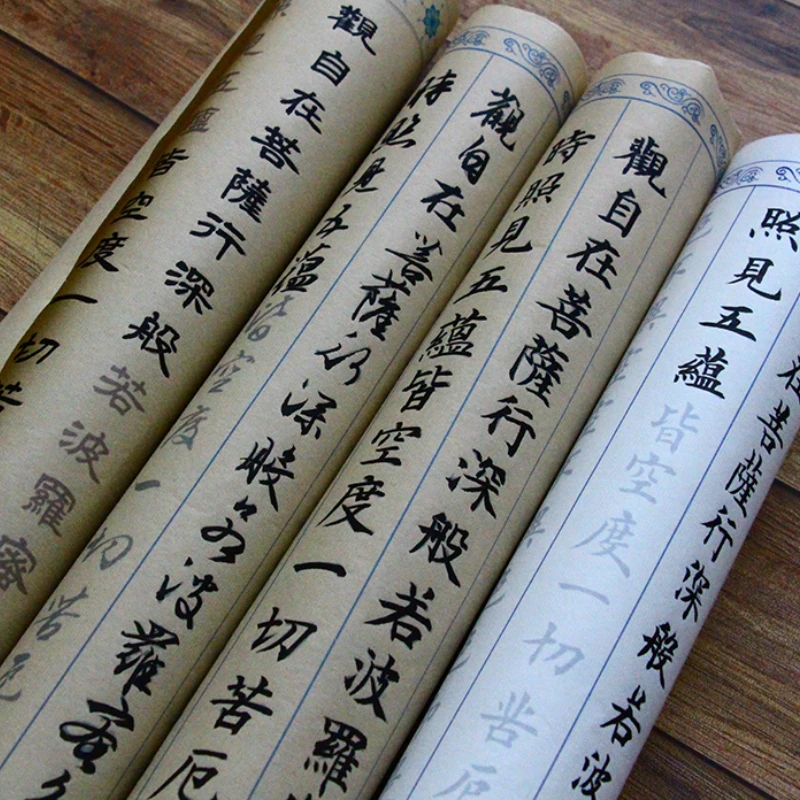 觀自在菩薩行深般若波羅蜜
五蘊皆空度一切苦
觀自在菩薩行深般若波羅蜜多
時照見五蘊皆空度一切苦厄
觀自在菩薩行深般若波羅
時照見五蘊皆空度一切苦厄
在菩薩行深般若波
照見五蘊皆空度一切苦厄